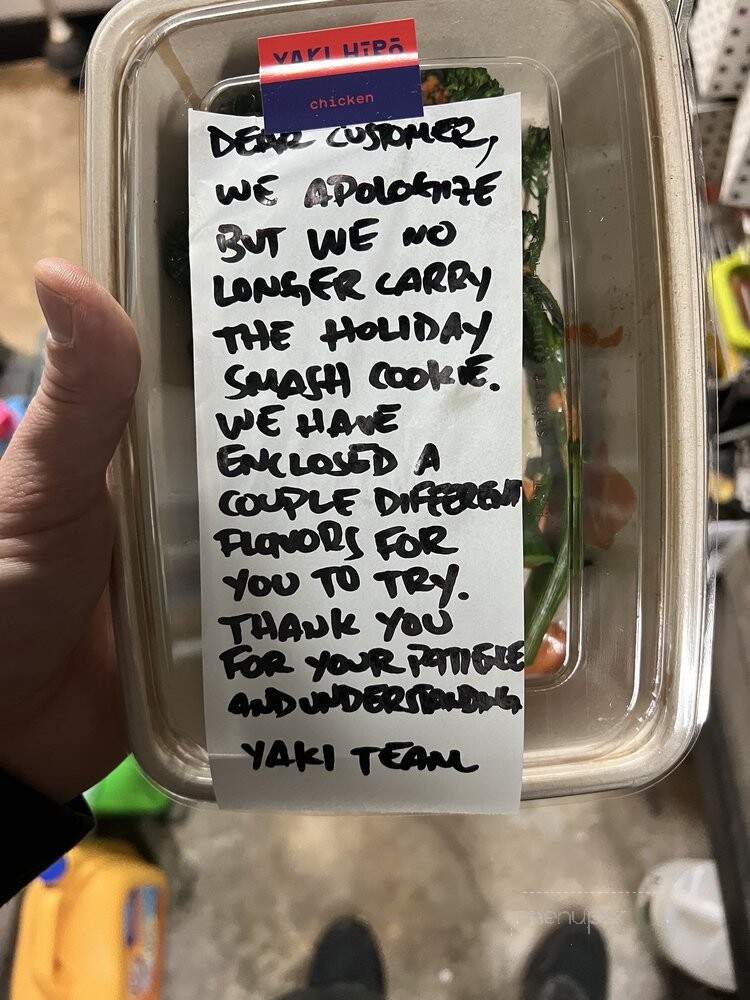 YAKI HIRŌ
chicken
DEAR CUSTOMER,
WE APOLOGIZE
BUT WE NO
LONGER CARRY
THE HOLIDAY
SMASH COOKIE.
WE HAVE
ENCLOSED A
COUPLE DIFFERENT
FLAVORS FOR
YOU TO TRY.
THANK YOU
FOR YOUR PATIENCE
AND UNDERSTANDING
YAKI TEAM